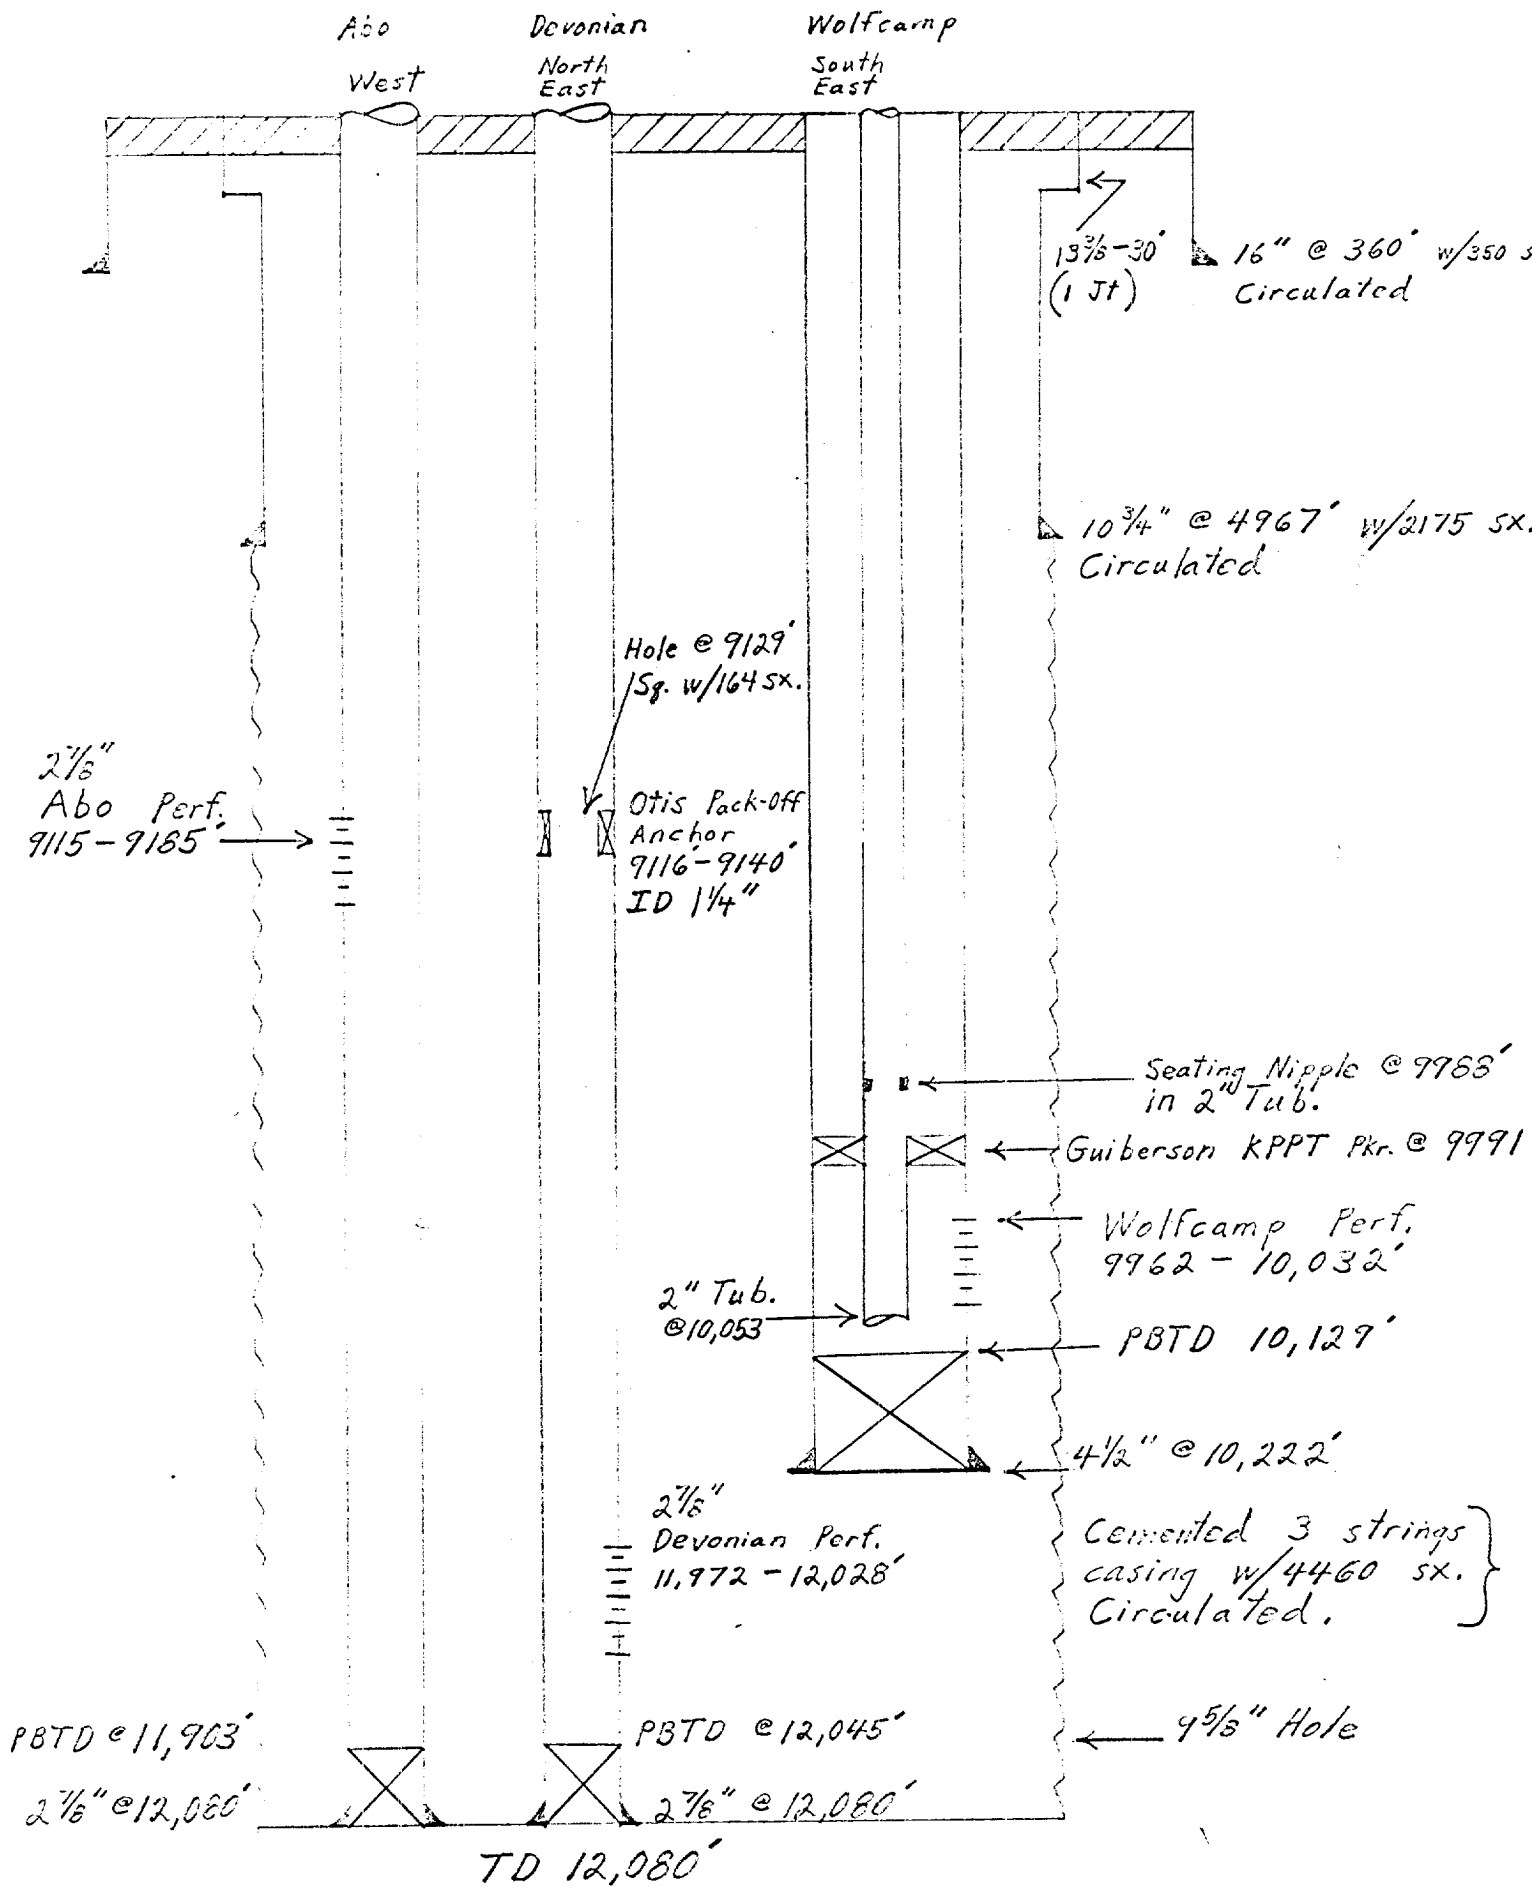 Abo
West
Devonian
North
East
Wolfcamp
South
East
13 3/8 - 30'
(1 Jt)
16" @ 360' w/350 s
Circulated
10 3/4" @ 4967' w/2175 sx.
Circulated
Hole @ 9129'
Sq. w/164 sx.
2 7/8"
Abo Perf.
9115 - 9185'
Otis Pack-off
Anchor
9116' - 9140'
ID 1 1/4"
Seating Nipple @ 9988'
in 2" Tub.
Guiberson KPPT Pkr. @ 9991
Wolfcamp Perf.
9962 - 10,032'
2" Tub.
@10,053
PBTD 10,129'
4 1/2" @ 10,222'
2 7/8"
Devonian Perf.
11,972 - 12,028'
Cemented 3 strings
casing w/4460 sx.
Circulated.
PBTD @ 11,903'
PBTD @ 12,045'
9 5/8" Hole
2 7/8" @ 12,080'
2 7/8" @ 12,080'
TD 12,080'